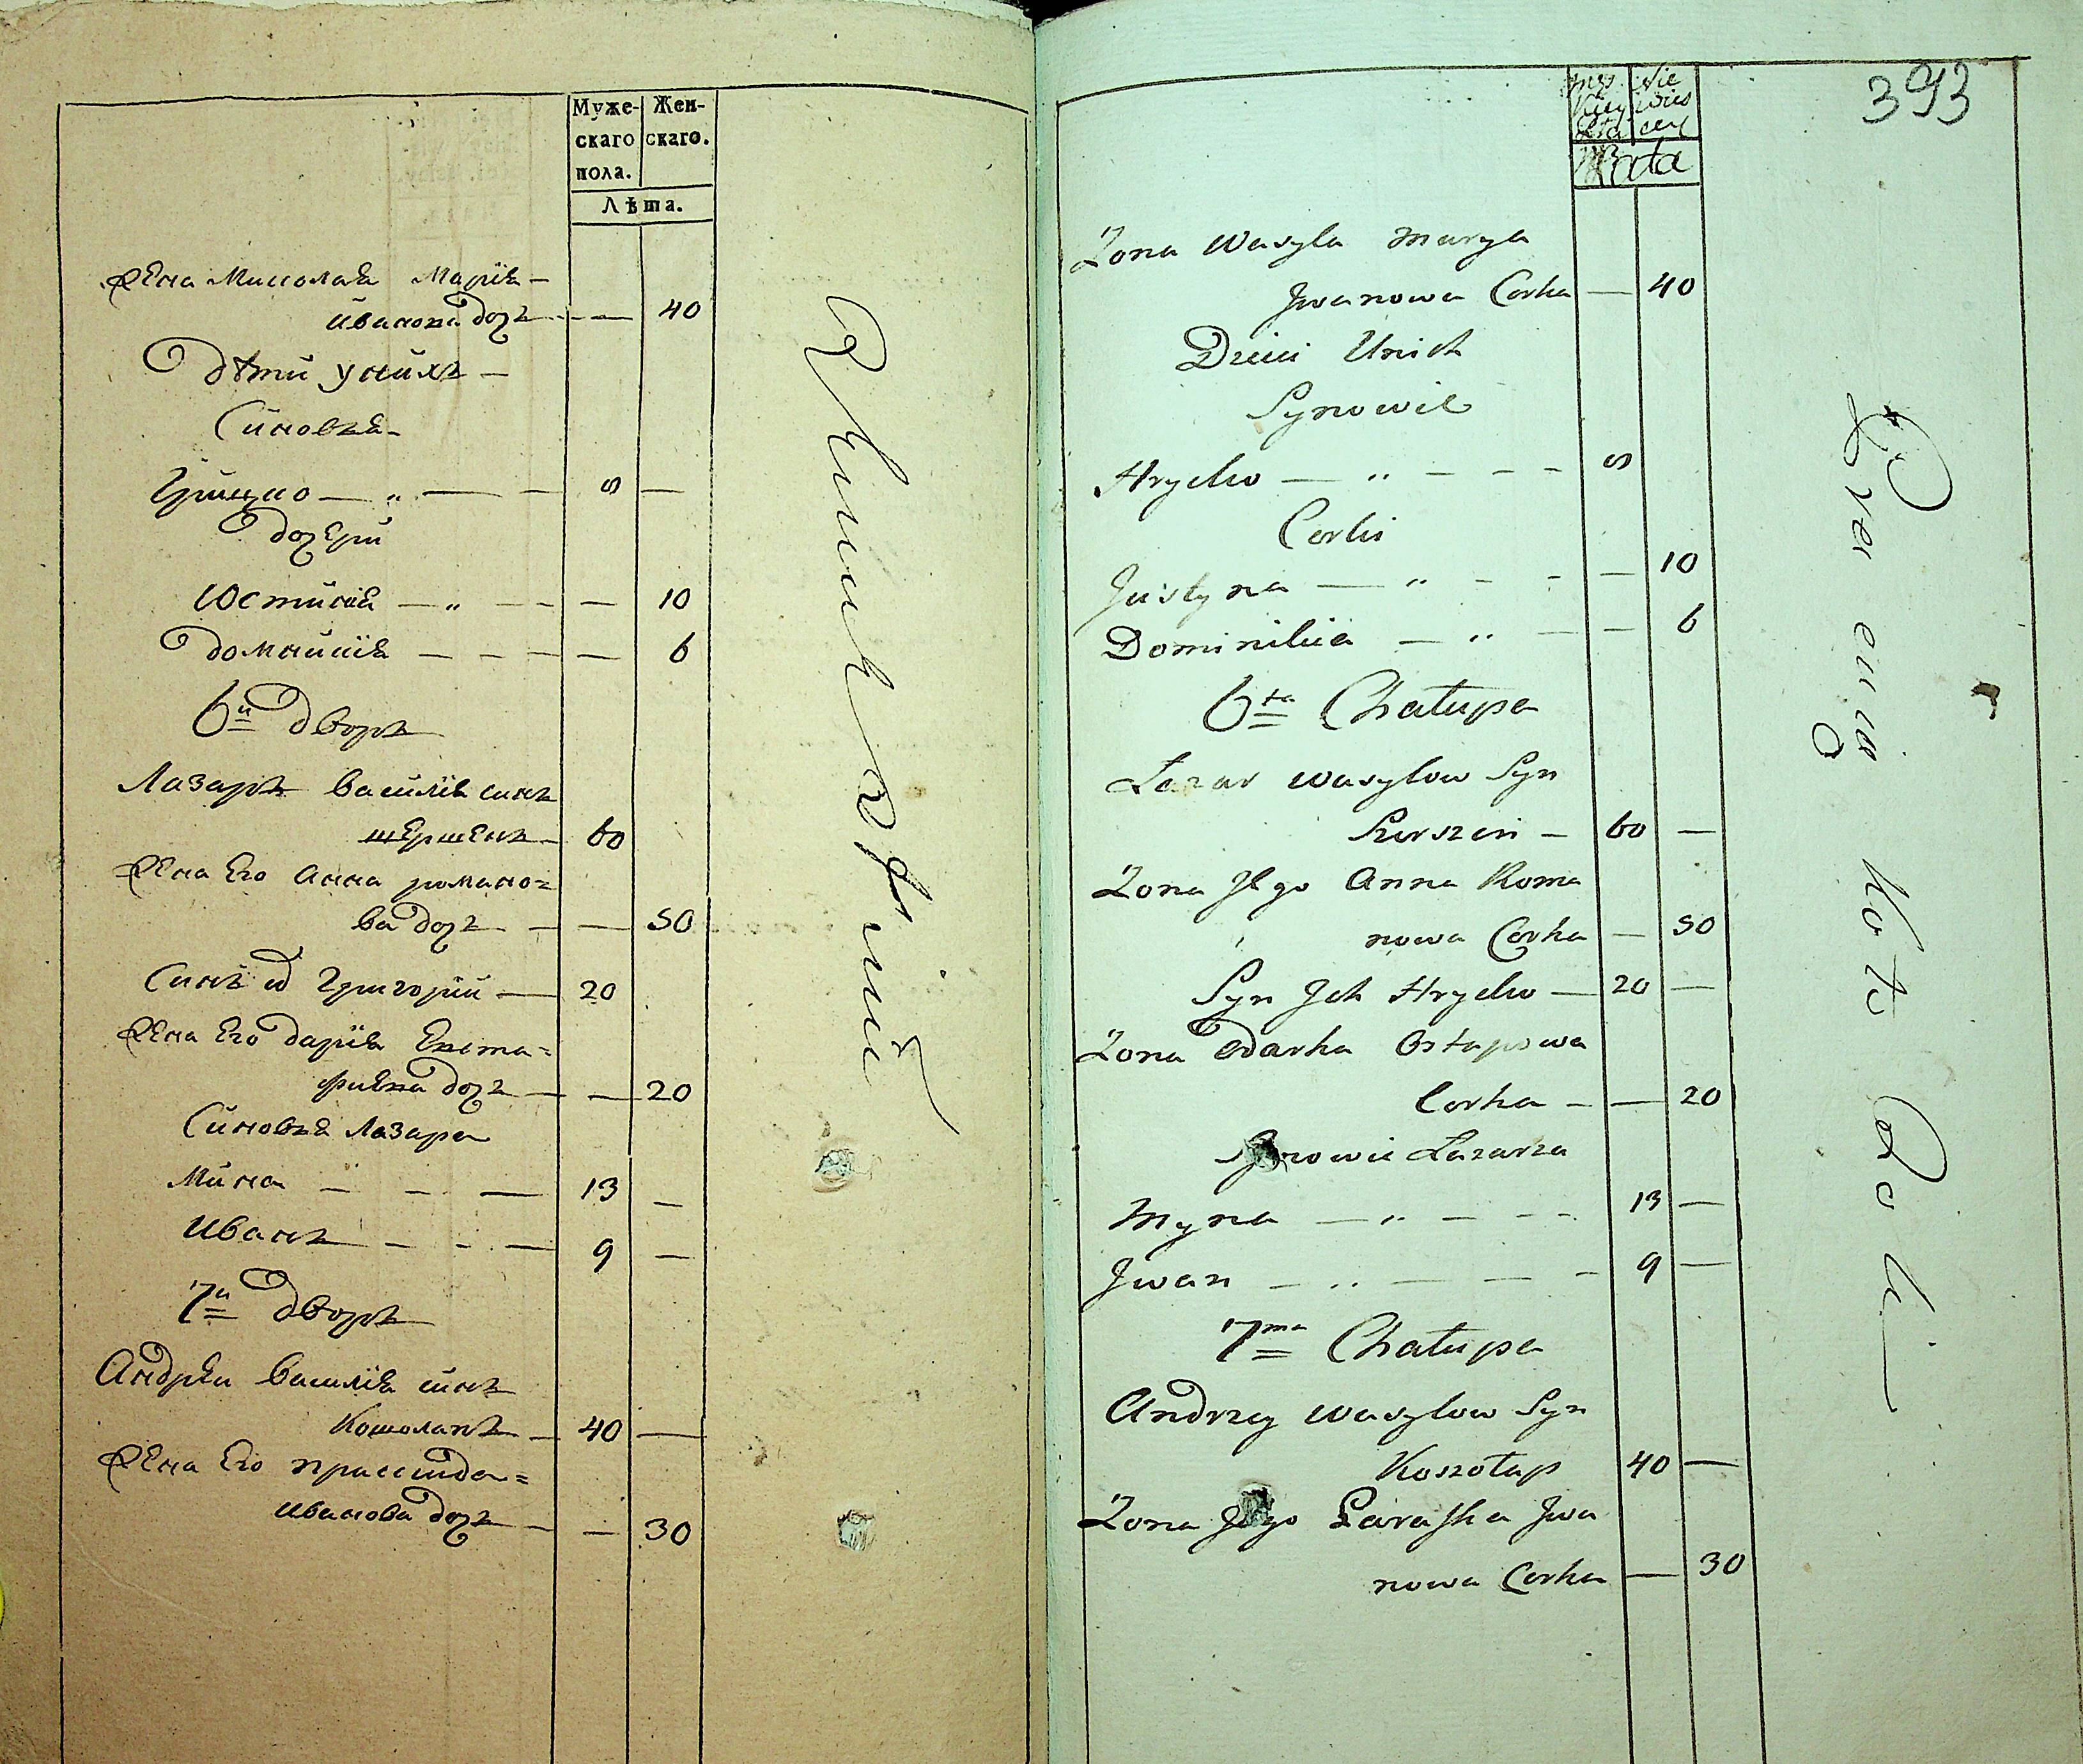 Муже-
скаго
пола.
Жен-
скаго.
Лѣта.
Жена Миколая Марія —
Иванова дочь — — 40
Дѣти у нихъ —
Синовья —
Грицко — „ — — 8 —
дочери
Юстинія — „ — — — 10
Домникія — — — — 6
6й дворъ
Лазарь Василів синъ
шершень — 60
Жена Его Анна романо=
ва дочь — — 50
Синъ их Григорій — 20
Жена Его дарія Евста=
фиева дочь — — 20
Синовья Лазара
Мина — — — 13 —
Иванъ — — — 9 —
7й дворъ
Андрей Василів синъ
Кошолапъ — 40 —
Жена Его прасковія
Иванова дочь — — 30
393
Męz
kiey
Nie
wies
ciey
Lata
Zona Wasyla Marya
Jwanowa Corka — 40
Dzieci Unich
Synowie
Hrycko — „ — — — 8
Corki
Justyna — „ — — — 10
Dominikia — „ — — 6
6ta Chałupa
Lazar Wasylow Syn
Szerszeń — 60 —
Zona Jego Anna Roma
nowa Corka — 50
Syn Jch Hrycko — 20 —
Zona Odarka Ostapowa
Corka — — 20
Synowie Lazarza
Myna — „ — — — 13 —
Jwan — „ — — — 9 —
7ma Chałupa
Andrzey Wasylow Syn
Koszołap 40 —
Zona Jego Paraska Jwa
nowa Corka — 30